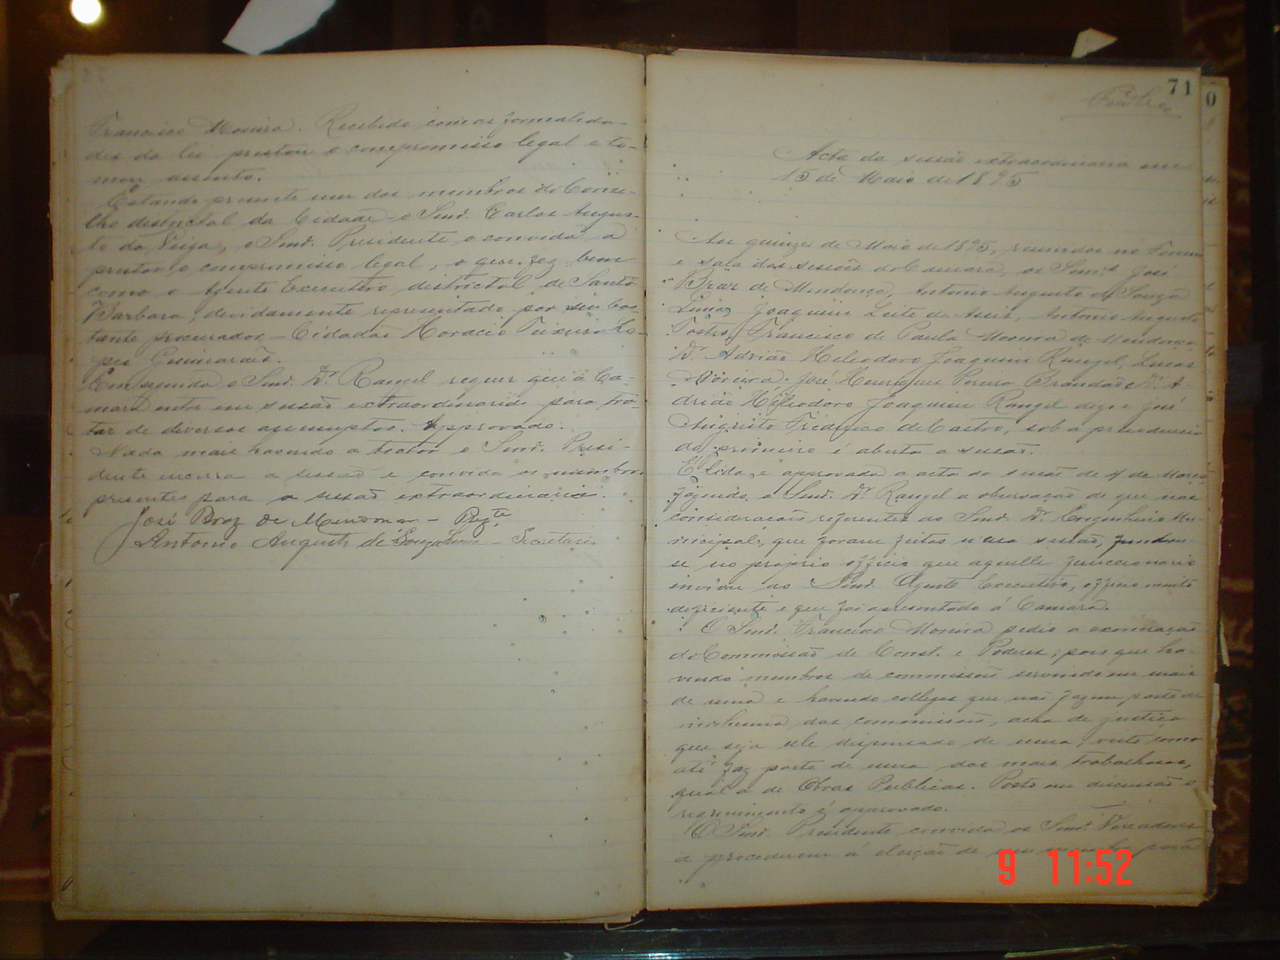 Francisco Moreira. Recebido com as formalida-
des da lei prestou o compromisso legal e to-
mou assento.
Estando presente um dos membros do Conse-
lho districtal da Cidade o Snr. Carlos Augus-
to da Veiga, o Snr. Presidente o convida a
prestar o compromisso legal, o que fez bem
como o Agente Executivo districtal de Santa
Barbara, devidamente representado por seu bas-
tante procurador Cidadão Horacio Teixeira Lo-
pes Guimarães.
Em seguida o Snr. Dr. Rangel requer que a Ca-
mara entre em sessão extraordinaria para tra-
tar de diversos assumptos. Approvado.
Nada mais havendo a tratar o Snr. Presi-
dente encerra a sessão e convida os membros
presentes para a sessão extraordinaria.
José Braz de Mendonça - Prezte.
Antonio Augusto de Souza Lima - Secretario
71
Acta da sessão extraordinaria em
15 de Maio de 1895
Aos quinze de Maio de 1895, reunidos no Forum
e sala das sessões da Camara, os Snres. José
Braz de Mendonça, Antonio Augusto de Souza
Lima, Joaquim Leite de Assis, Antonio Augusto
Francisco de Paula Moreira de Mendonça,
Dr. Adrião Heliodoro Joaquim Rangel, Lucas
Moreira, José Henrique Pereira Brandão, Dr. A-
drião Heliodoro Joaquim Rangel digo e José
Augusto Frederico de Castro, sob a presidencia
do primeiro é aberta a sessão.
É lida e approvada a acta da sessão de 4 de Março
fazendo o Snr. Dr. Rangel a observação de que nas
considerações referentes ao Snr. Dr. Engenheiro Mu-
nicipal, que foram feitas n'essa sessão, fundou-
se no proprio officio que aquelle funccionario
inviou ao Snr. Agente Executivo, officio muito
deficiente e que foi apresentado á Camara.
O Snr. Francisco Moreira pedio a exoneração
da Commissão de Const. e Poderes, por que ha-
vendo membros de commissões servindo em mais
de uma e havendo collegas que não fazem parte de
nenhuma das commissões, acha de justiça
que seja elle dispensado de uma, visto como
até faz parte de uma das mais trabalhosas,
qual a de Obras Publicas. Posto em discussão o
requerimento é approvado.
O Snr. Presidente convida os Snres. Vereadores
a procederem á eleição de um membro para
9 11:52